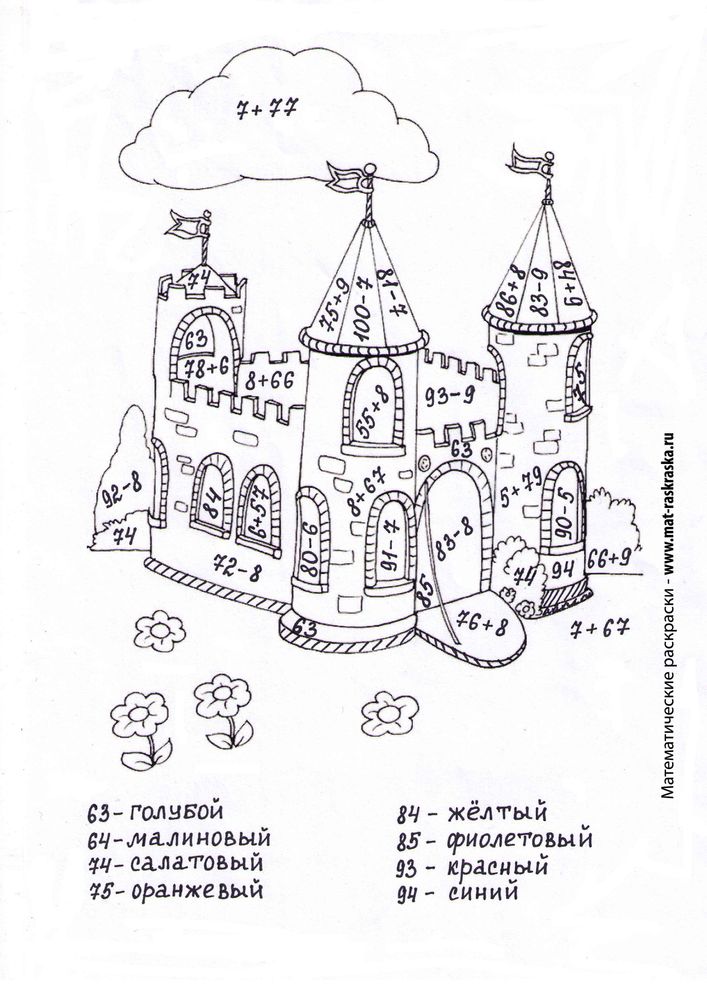 7+77
74
75+9
100-7
81-7
86+8
83-9
84+9
63
78+6
8+66
55+8
93-9
75
63
92-8
84
6+57
8+67
5+79
74
80-6
91-7
83-8
90-5
72-8
85
74
94
66+9
63
76+8
7+67
63-голубой
64-малиновый
74-салатовый
75-оранжевый
84 - жёлтый
85 - фиолетовый
93 - красный
94 - синий
Математические раскраски - www.mat-raskraska.ru